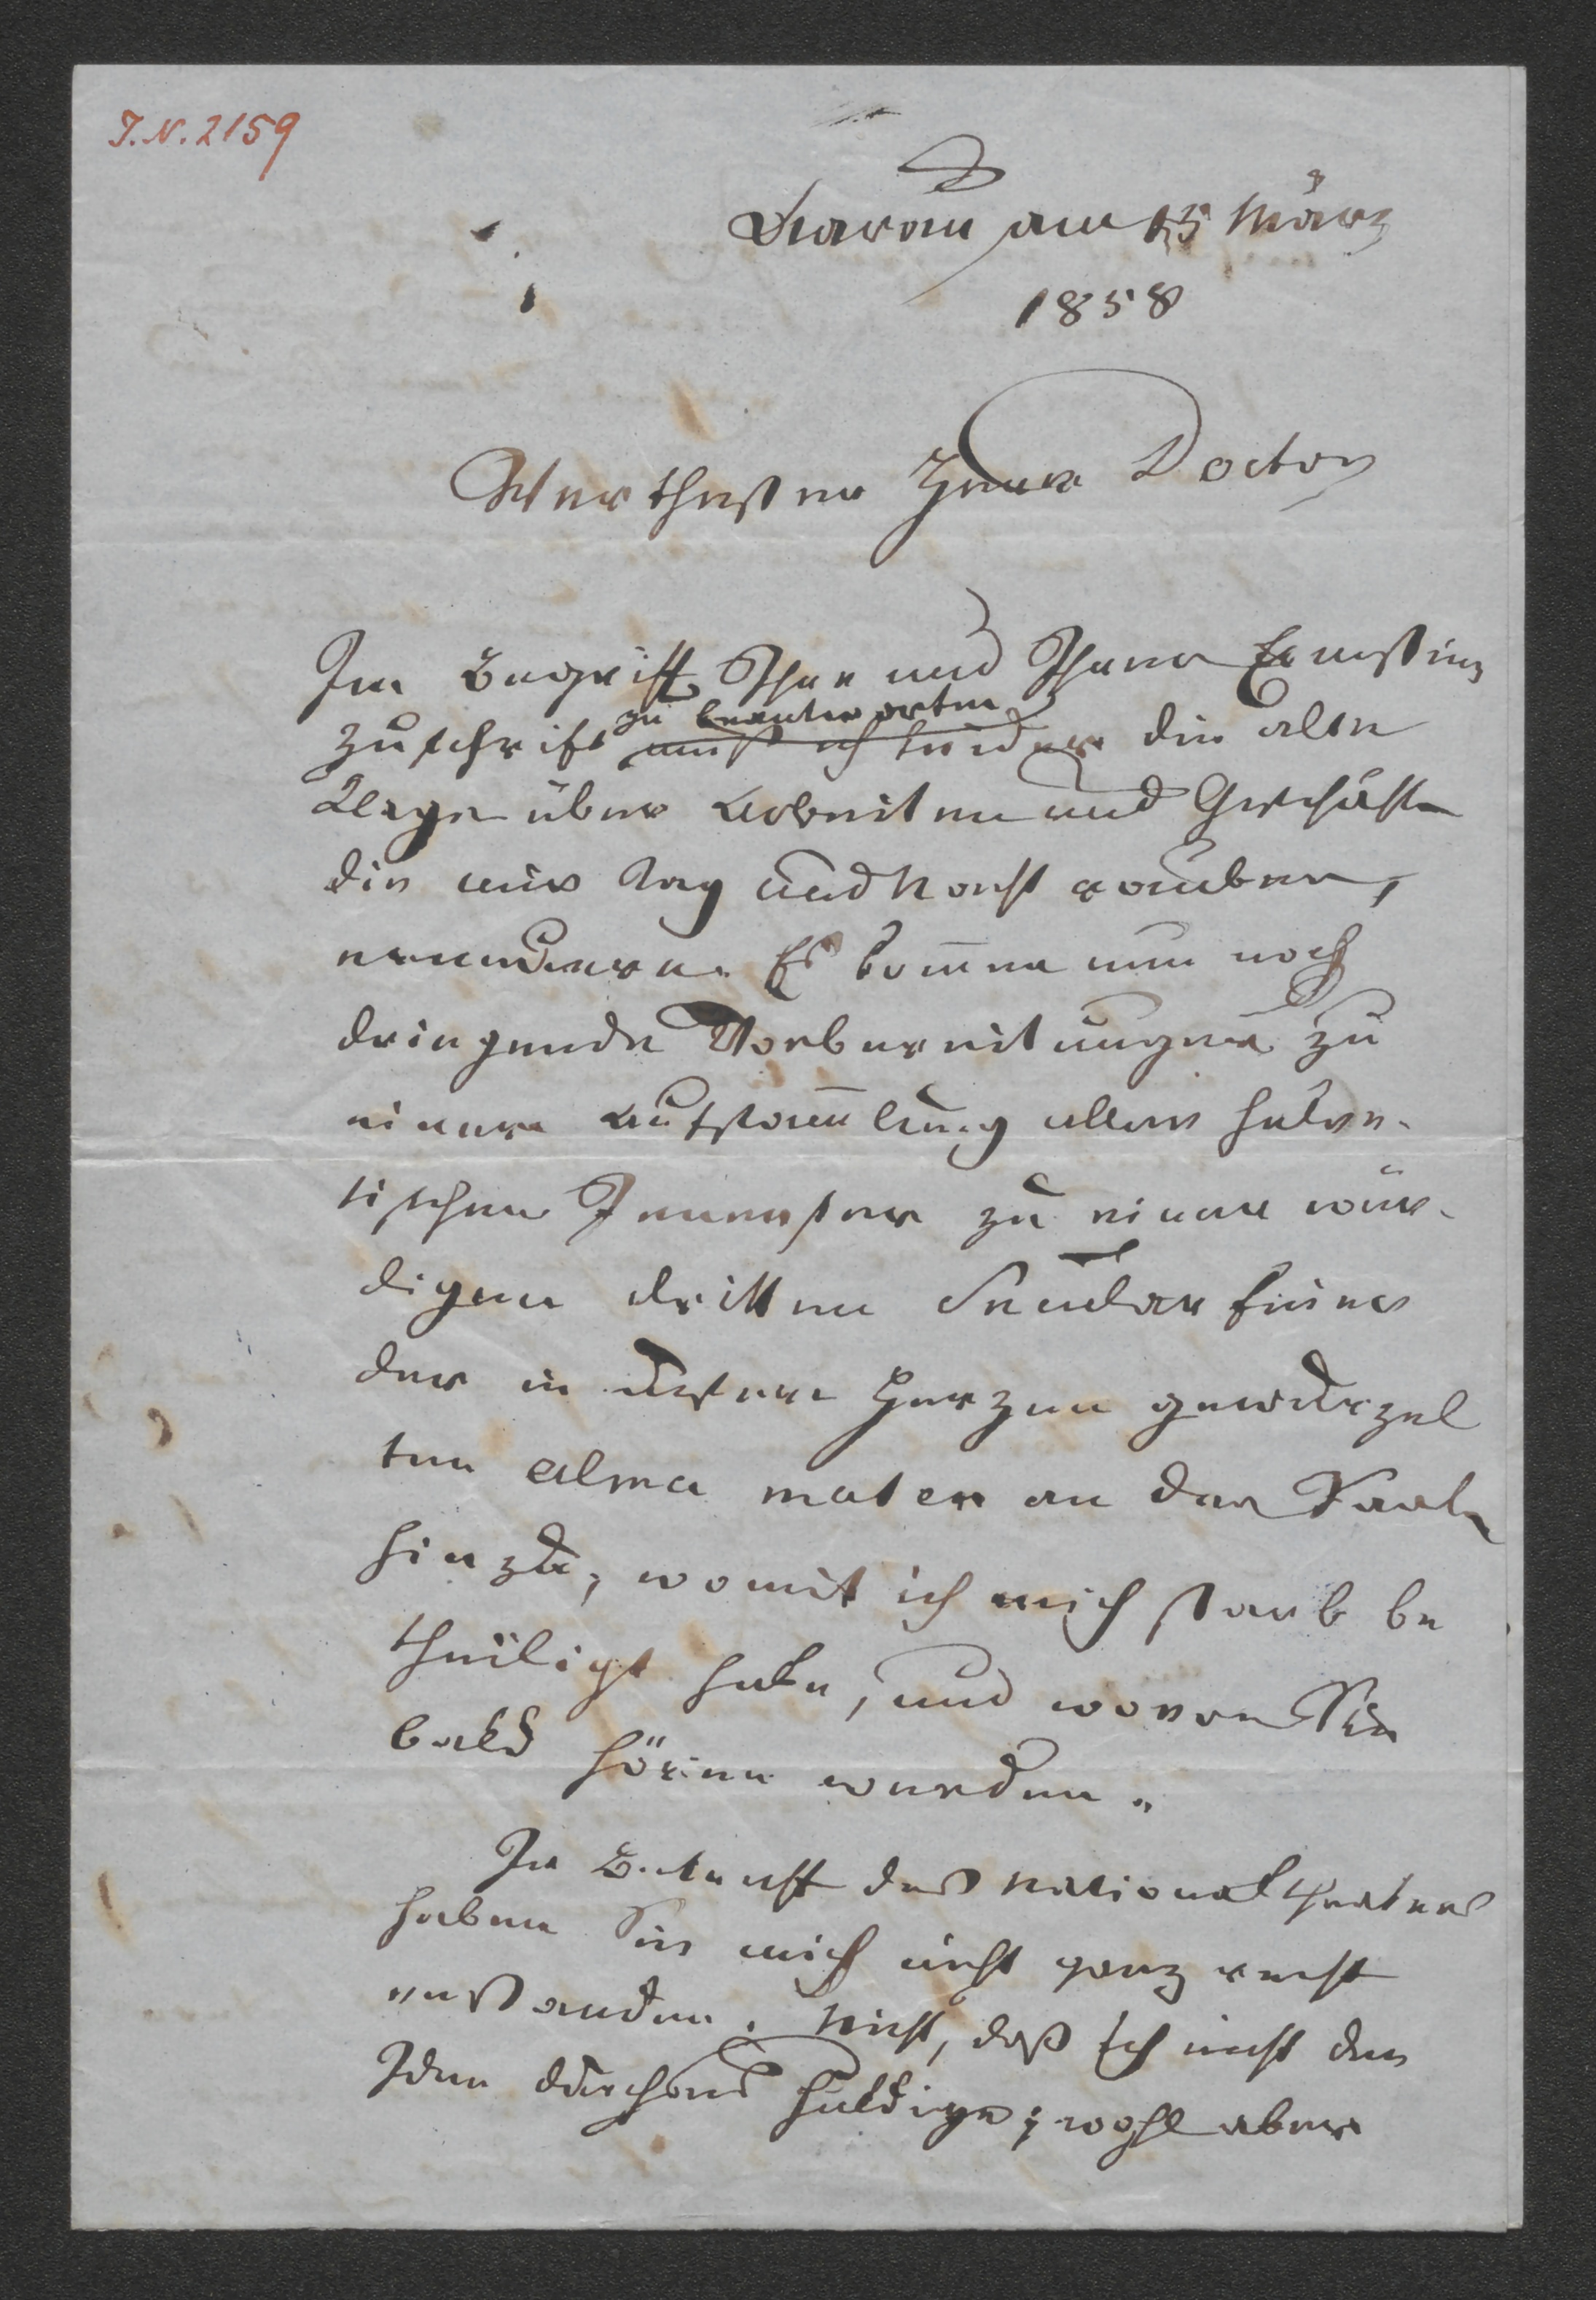 I.N. 2159
Aarau am 15 März
1858
Werthester Herr Doctor
Im Begriff Ihre und Ihrer Ernestine
Zuschrift zu beantworten muß ich leider die alte
Klage über Arbeiten und Geschäfte
die mir Tag und Nacht rauben,
erneuern. Es komen nun noch
dringende Vorbereitungen zu
einer Aufstamlung aller helve-
tischen Jenenser zu einer wür-
digen dritten Secularfeier
der in unsere Herzen gewurzel
ten alma mater an der Saale
hinzu, womit ich mich stark be
theiligt habe, und wovon Sie
bald hören werden.
In Betreff des Nationaltheaters
haben Sie mich nicht ganz recht
verstanden. Nicht, daß ich nicht den
Ideen durchaus huldige; wohl aber